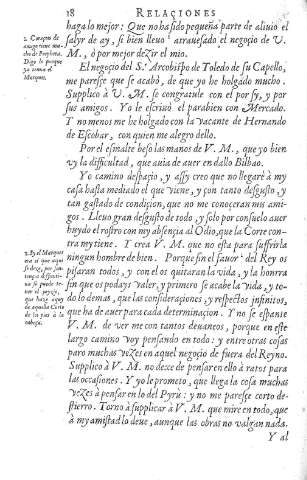 18 RELACIONES
haga lo mejor: Que no ha sido pequeña parte de aliuio el
salyr de ay, si bien lleuo atrauesado el negoçio de V.
M., ò por mejor dezir el mio.
El negoçio del S.r Arcobispo de Toledo de su Capello,
me paresçe que se acabò, de que yo he holgado mucho.
Supplico à V. M. se congratule con el por sy, y por
sus amigos. Yo le escriuò el parabien con Mercado.
T no menos me he holgado con la vacante de Hernando
de Escobar, con quien me alegro dello.
Por el esmalte beso las manos de V. M., que yo bien
vy la difficultad, que auia de auer en dallo Bilbao.
Yo camino despaçio, y assy creo que no llegarè à my
casa hasta mediado el que viene, y con tanto desgusto, y
tan gastado de condiçion, que no me conosçeran mus ami-
gos. Lleuo gran desgusto de todo, y solo por consuelo auer
huydo el rostro con my absençia al Odio, que la Corte con-
tra my tiene. Y crea V. M. que no esta para suffrirla
ningun hombre de bien. Porque sin el fauor del Rey os
pisaran todos, y con el os quitaran la vida, y la honrra
sin que os podays valer, y primero se acabe la vida, y to-
do lo demas, que las consideraçiones, y respectos infinitos,
que ha de auer para cada determinaçion. Y no se espante
V. M. de ver me con tantos deuaneos, porque en este
largo camino voy pensando en todo: y entre otras cosas
paro muchas vezes en aquel negoçio de fuera del Reyno.
Supplicò à V. M. no dexe de pensar en ello à ratos para
las occasiones. Y yo le prometo, que llega la cosa muchas
vezes à pensar en lo del Pyrù: y no me paresçe corto de-
stierro. Torno à supplicar à V. M. que mire en todo, que
à my amistad lo deue, aunque las obras no valgan nada.
Y al
1. Coraçon de
amigo tiene mu-
cho de Propheta.
Digo lo porque
yo como el
Marques.
2. Sy el Marques
era el que aquí
se dexe, por
tiempo